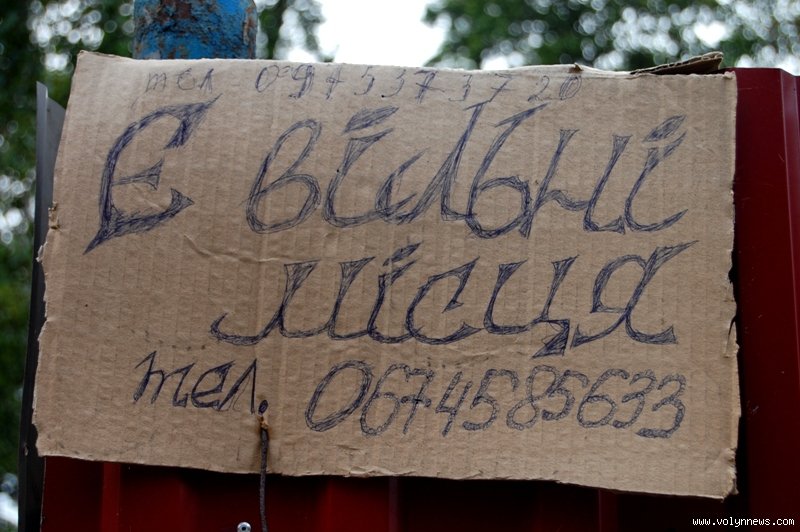 тел 0975373720
Є вільні
місця
тел. 0674585633
www.volynnews.com